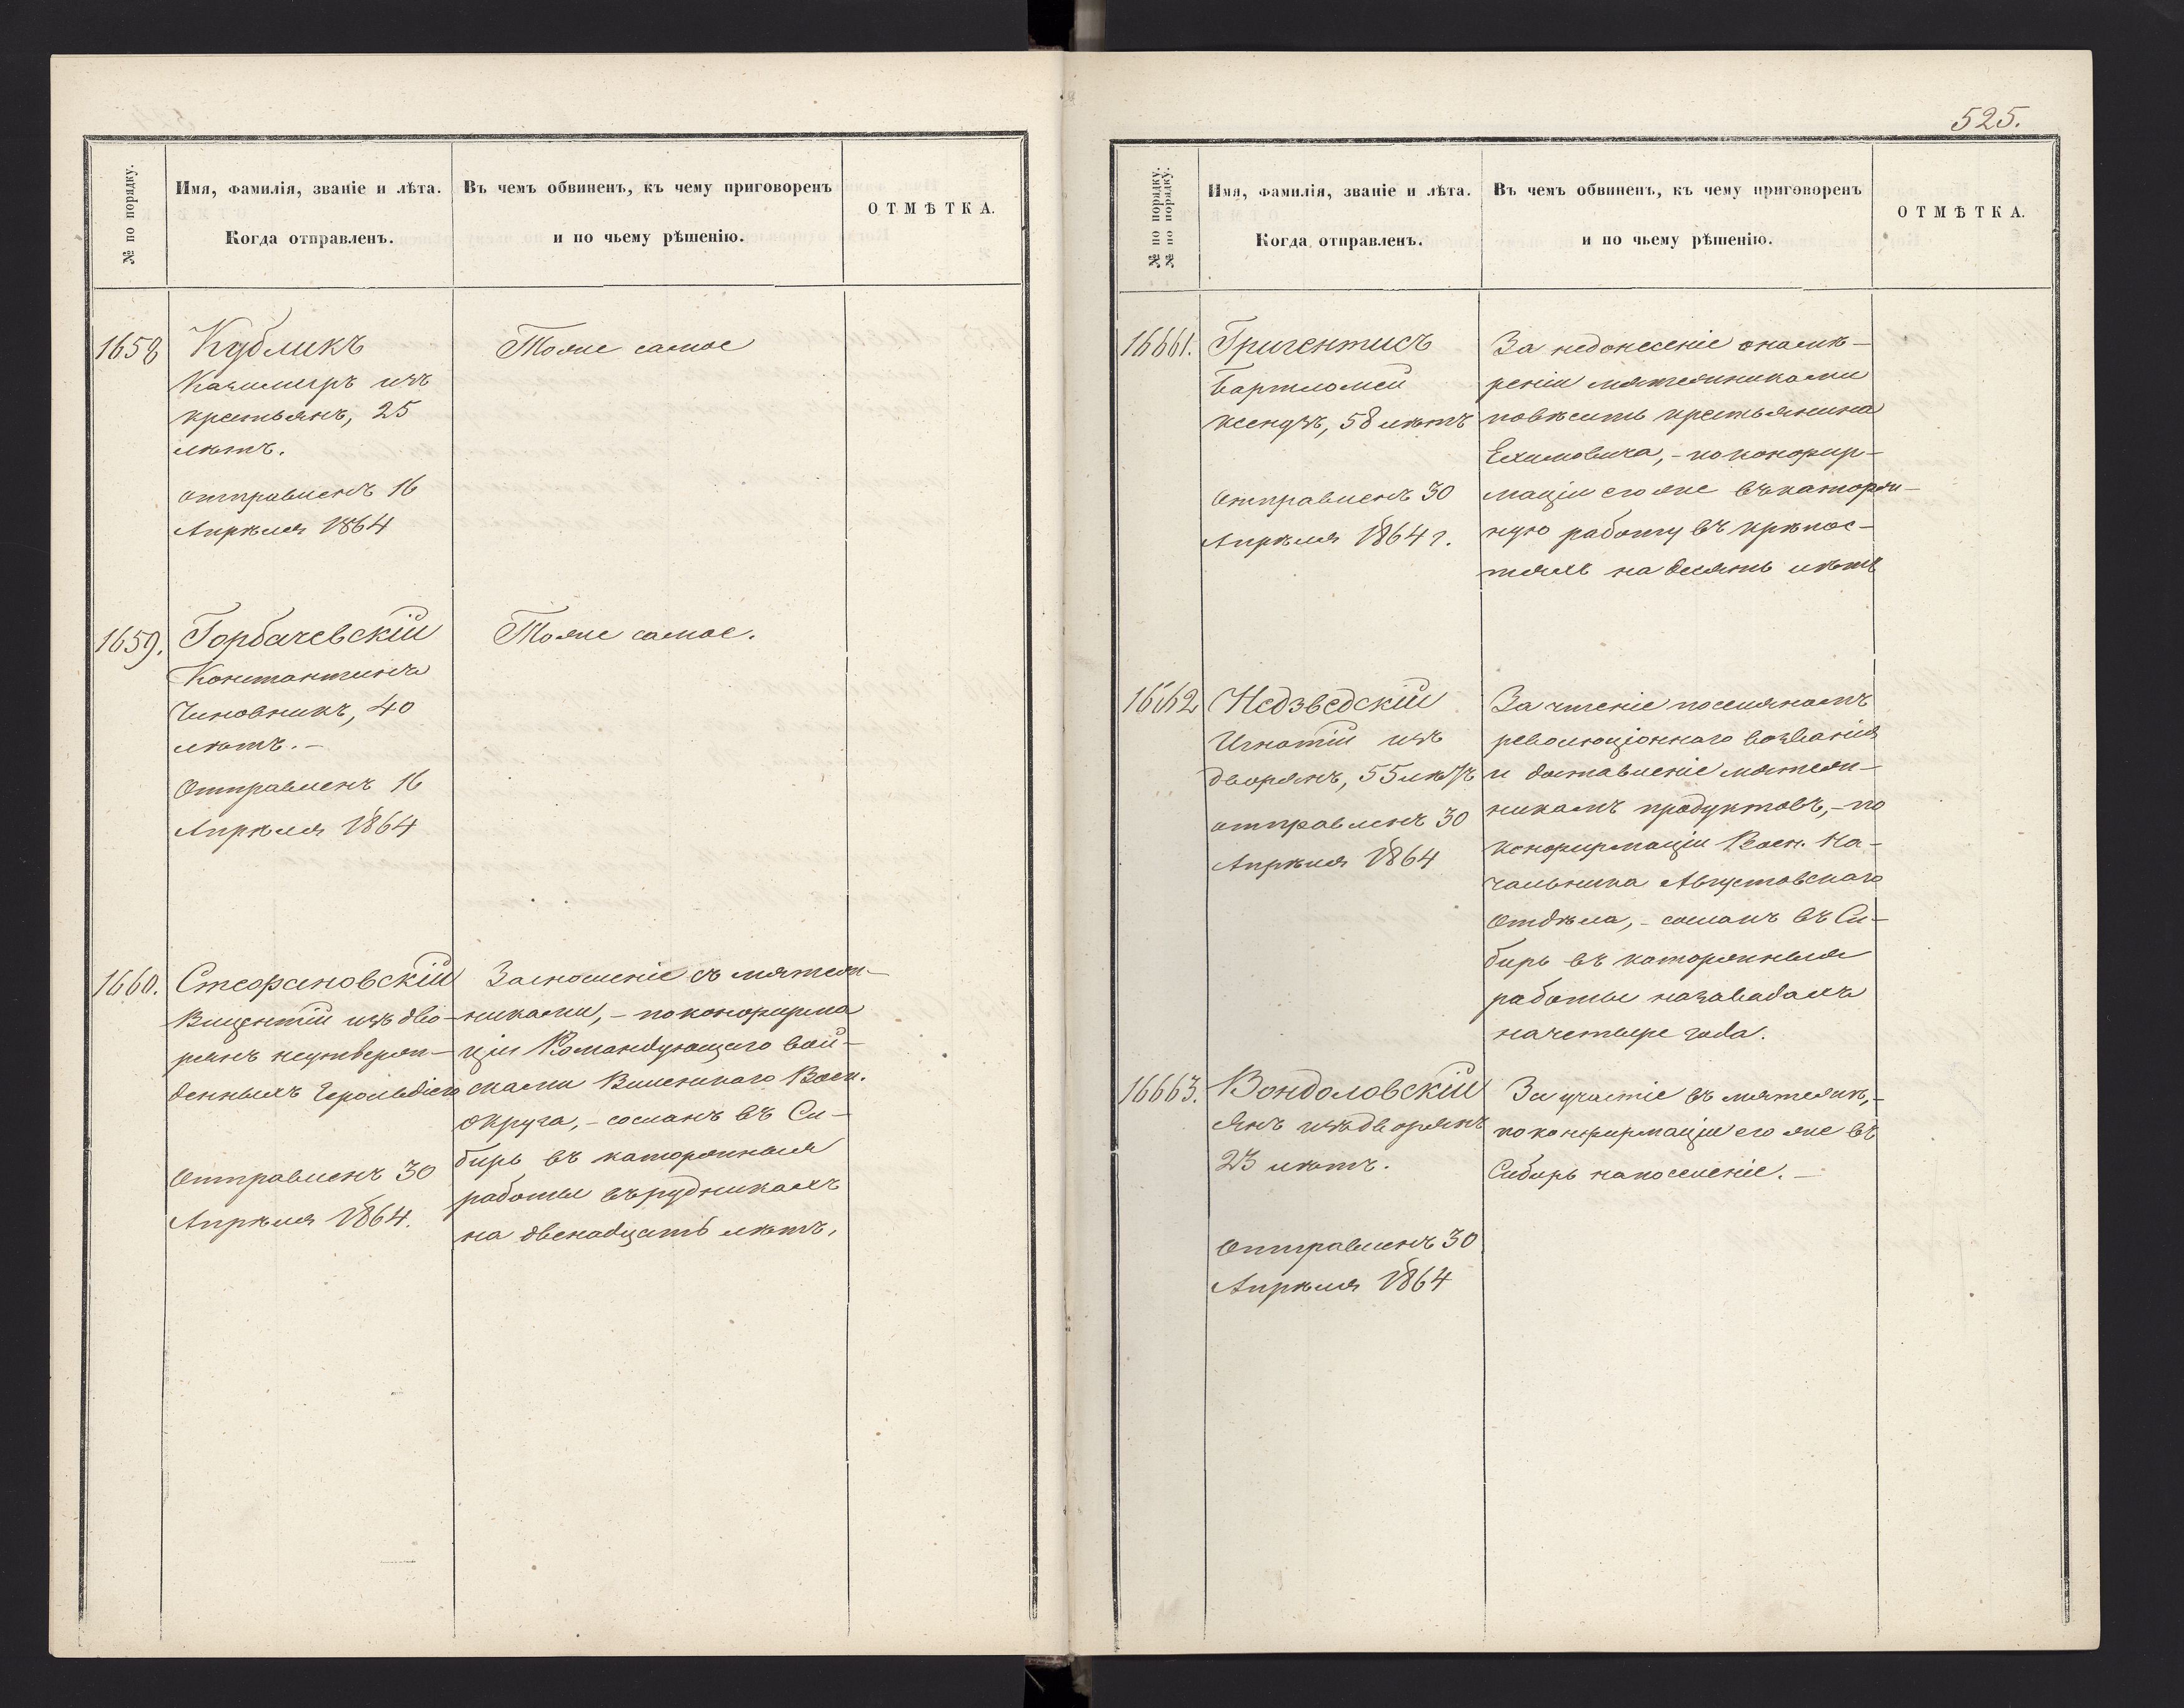 № по порядку.
Имя, фамилія, званіе и лѣта.
Когда отправленъ.
Въ чемъ обвиненъ, къ чему приговоренъ
и по чьему рѣшенію.
ОТМѢТКА.
1658
Кубликъ
Казимиръ изъ
крестьянъ, 25
лѣтъ.
отправленъ 16
Апрѣля 1864
Тоже самое
1659.
Горбачевскій
Константинъ
Чиновникъ, 40
лѣтъ. –
Отправленъ 16
Апрѣля 1864
Тоже самое.
1660.
Стефановскій
Вицентій изъ дво-
рянъ неутверж-
денныхъ Герольдіею
Отправленъ 30
Апрѣля 1864.
За сношеніе съ мятеж-
никами, – по конфирма
ціи Командующаго вой-
сками Виленскаго Воен.
округа, – сосланъ въ Си-
бирь въ каторжныя
работы въ рудникахъ
на двенадцать лѣтъ.
525.
№ по порядку.
№ по порядку.
Имя, фамилія, званіе и лѣта.
Когда отправленъ.
Въ чемъ обвиненъ, къ чему приговоренъ
и по чьему рѣшенію.
ОТМѢТКА.
16661.
Григентисъ
Бартломей
ксендзъ, 58 лѣтъ
Отправленъ 30
Апрѣля 1864 г.
За недонесеніе о намѣ-
реніи мятежниками
повѣсить крестьянина
Ехимовича, – по конфир-
маціи его же въ каторж-
ную работу въ крѣпос-
тяхъ на десять лѣтъ
16662
Недзведскій
Игнатій изъ
дворянъ, 55 лѣтъ
отправленъ 30
Апрѣля 1864
За чтеніе поселянамъ
революціоннаго воззванія
и доставленіе мятеж-
никамъ продуктовъ, – по
конфирмаціи Воен. На-
чальника Августовскаго
Отдѣла, – сосланъ въ Си-
бирь въ каторжныя
работы на заводахъ
на четыре года.
16663.
Вондоловскій
Янъ изъ дворянъ
23 лѣтъ.
Отправленъ 30
Апрѣля 1864
За участіе въ мятежѣ, –
по конфирмаціи его же въ
Сибирь на поселеніе. –